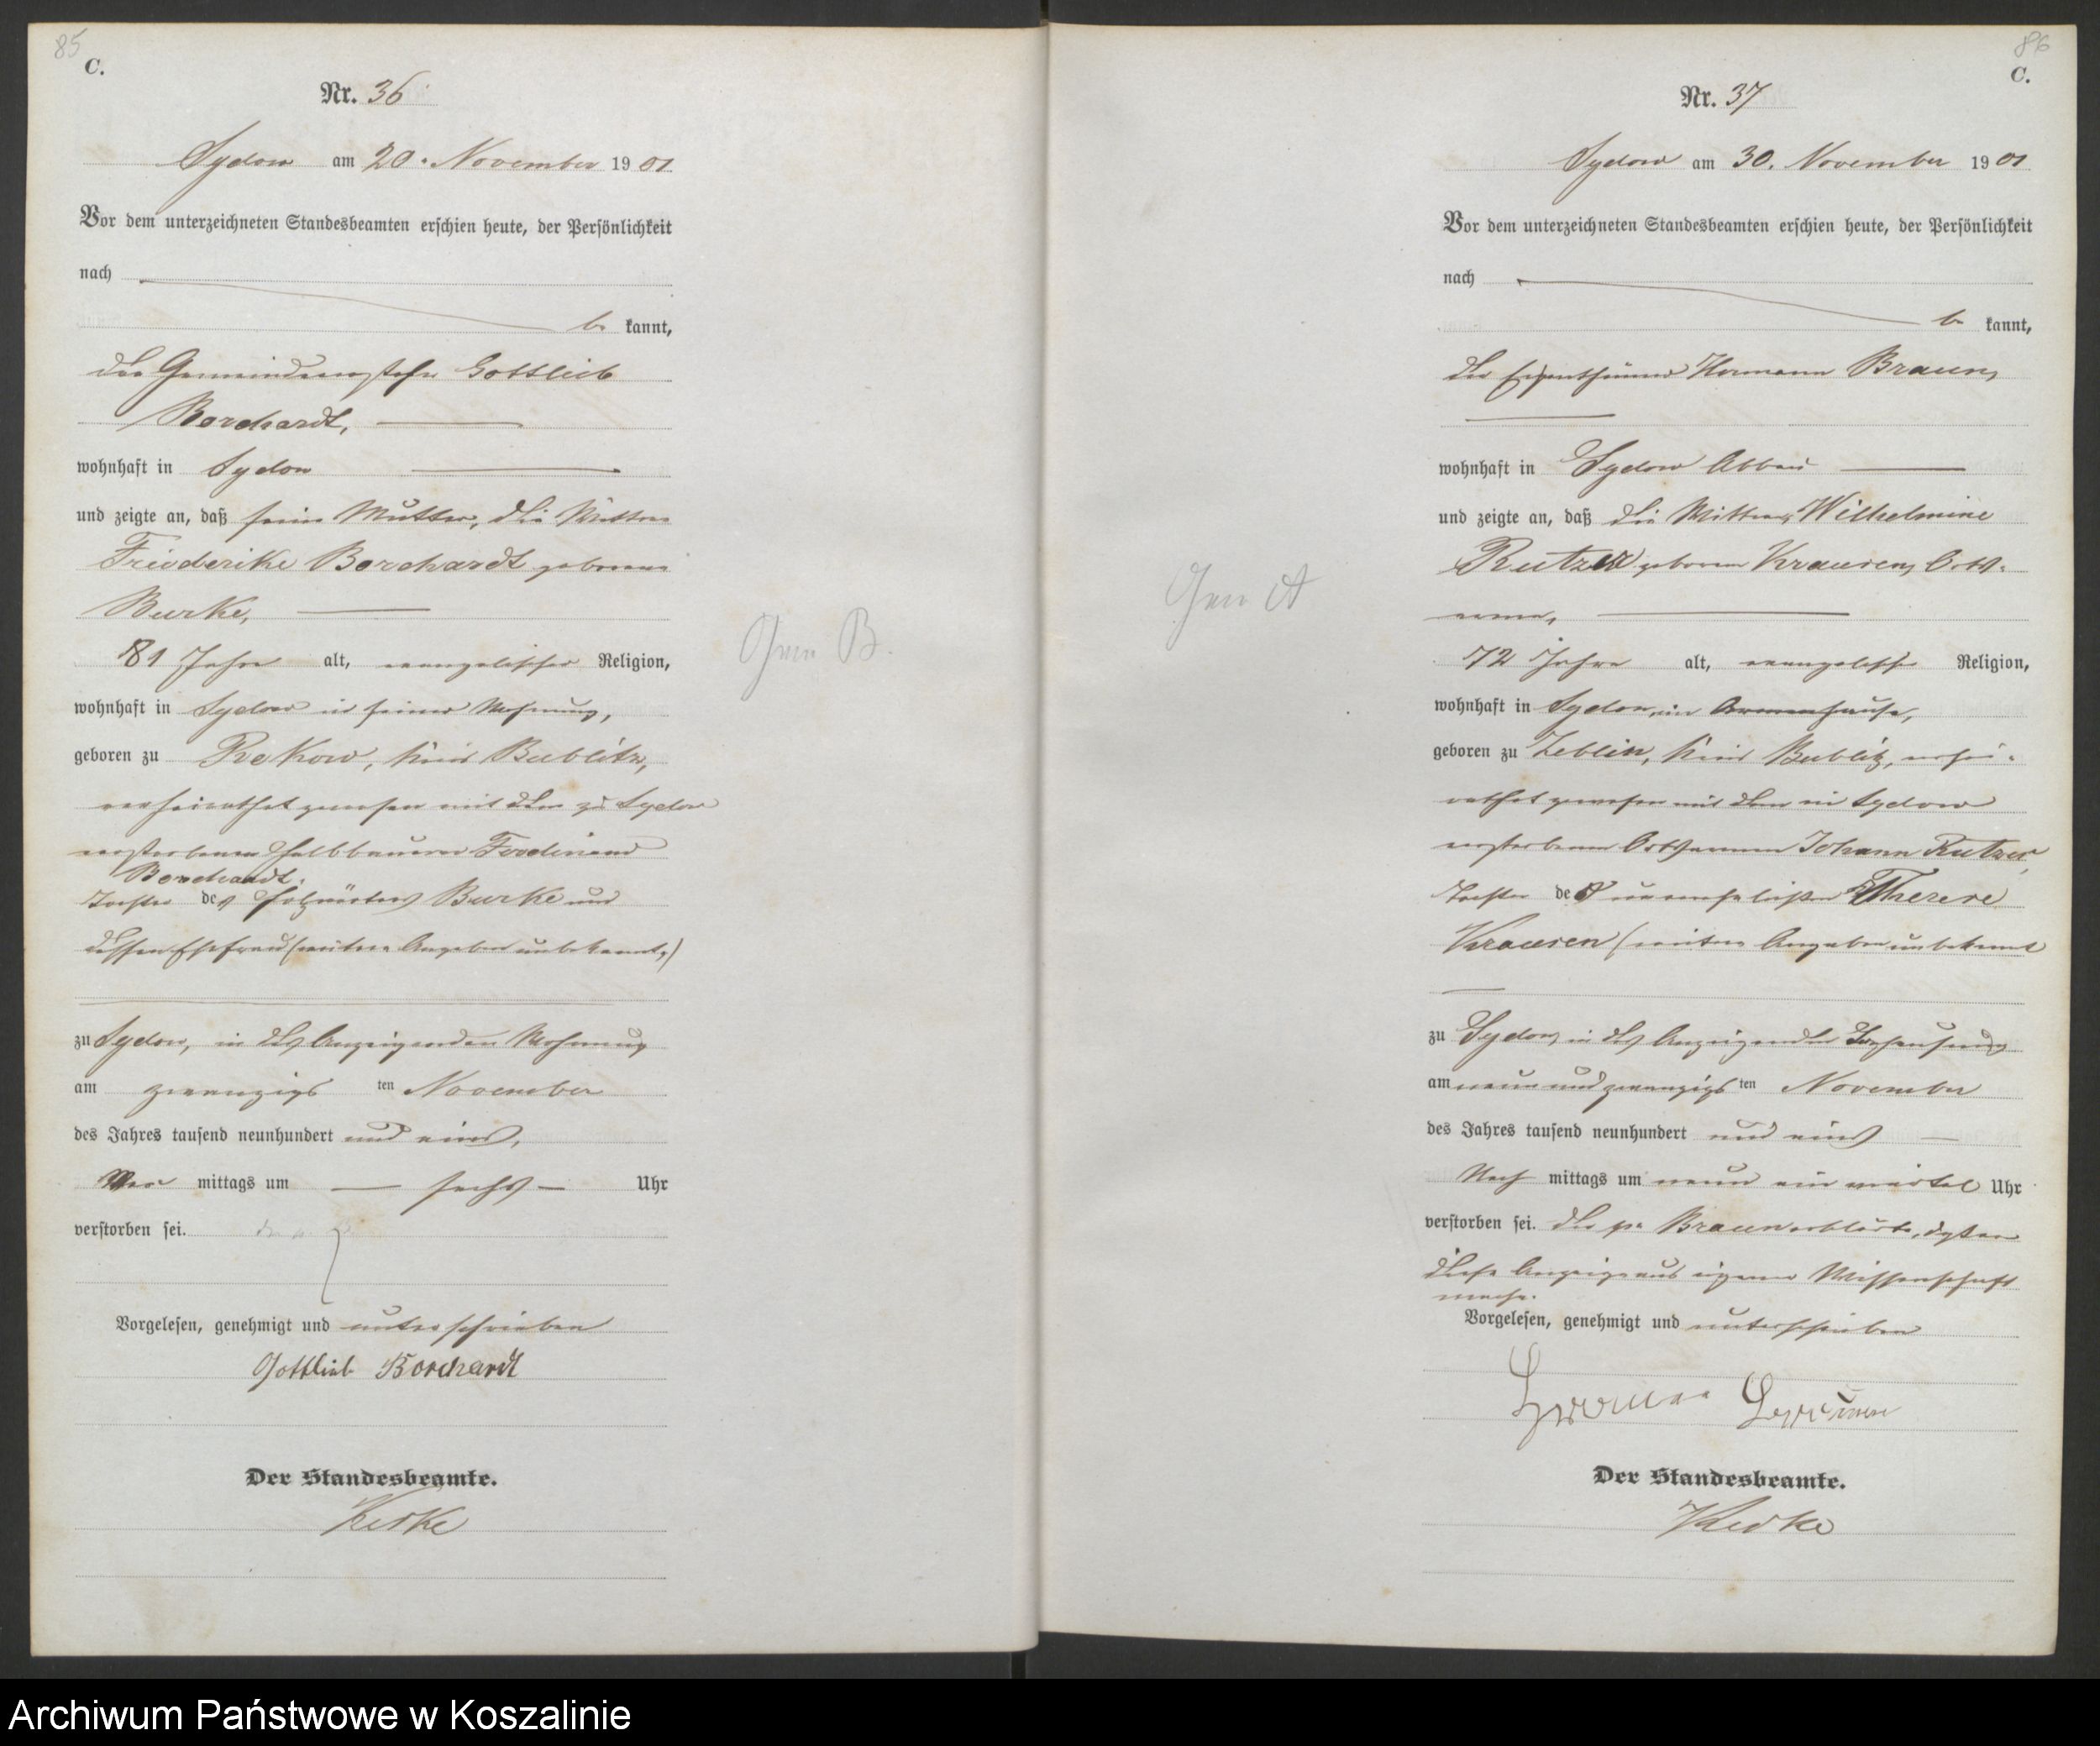 85
C.
Nr. 36
Sydow am 20. November 1901
Vor dem unterzeichneten Standesbeamten erschien heute, der Persönlichkeit
nach
be kannt,
der Gemeindevorsteher Gottlieb
Borchardt,
wohnhaft in Sydow
und zeigte an, daß seine Mutter, die Wittwe
Friederike Borchardt geborene
Burke,
81 Jahre alt, evangelischer Religion,
wohnhaft in Sydow in seiner Wohnung,
geboren zu Rekow, Kreis Bublitz,
verheirathet gewesen mit dem zu Sydow
verstorbenen Halbbauern Ferdinand
Borchardt.
Tochter des Holzwärters Burke und
dessen Ehefrau (weitere Angaben unbekannt,)
zu Sydow, in des Anzeigenden Wohnung
am zwanzigs ten November
des Jahres tausend neunhundert und eins,
Vor mittags um sechs Uhr
verstorben sei.
Vorgelesen, genehmigt und unterschrieben
Gottlieb Borchardt
Der Standesbeamte.
Gen B.
86
C.
Nr. 37
Sydow am 30. November 1901
Vor dem unterzeichneten Standesbeamten erschien heute, der Persönlichkeit
nach
be kannt,
der Eigenthümer Hermann Braun,
wohnhaft in Sydow Abbau
und zeigte an, daß die Wittwe, Wilhelmine
Rutzer geborene Krausen, Orts-
arme,
72 Jahre alt, evangelischer Religion,
wohnhaft in Sydow, im Armenhause,
geboren zu Zeblin, Kreis Bublitz, verhei-
rathet gewesen mit dem in Sydow
verstorbenen Ortsarmen Johann Rutzer,
Tochter der unverehelichten Therese
Krausen (weitere Angaben unbekannt
zu Sydow, in des Anzeigenden Behausung
am neun und zwanzigs ten November
des Jahres tausend neunhundert und eins
Nach mittags um neun ein viertel Uhr
verstorben sei. Der p. Braun erklärte, daß er
diese Anzeige aus eigener Wissenschaft
mache.
Vorgelesen, genehmigt und unterschrieben
Hermann Braun
Der Standesbeamte.
Gen A
Archiwum Państwowe w Koszalinie